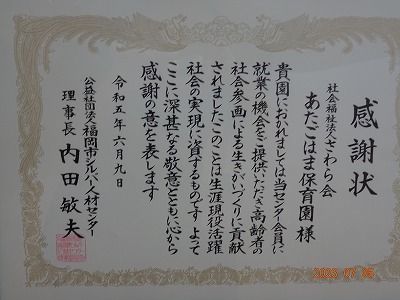 感謝状
社会福祉法人さわら会
あたごはま保育園 様
貴園におかれましては当センター会員に
就業の機会をご提供いただき高齢者の
社会参画による生きがいづくりに貢献
されましたこのことは生涯現役活躍
社会の実現に資するものです よって
ここに深甚なる敬意とともに心から
感謝の意を表します
令和五年六月九日
公益社団法人福岡市シルバー人材センター
理事長 内田敏夫